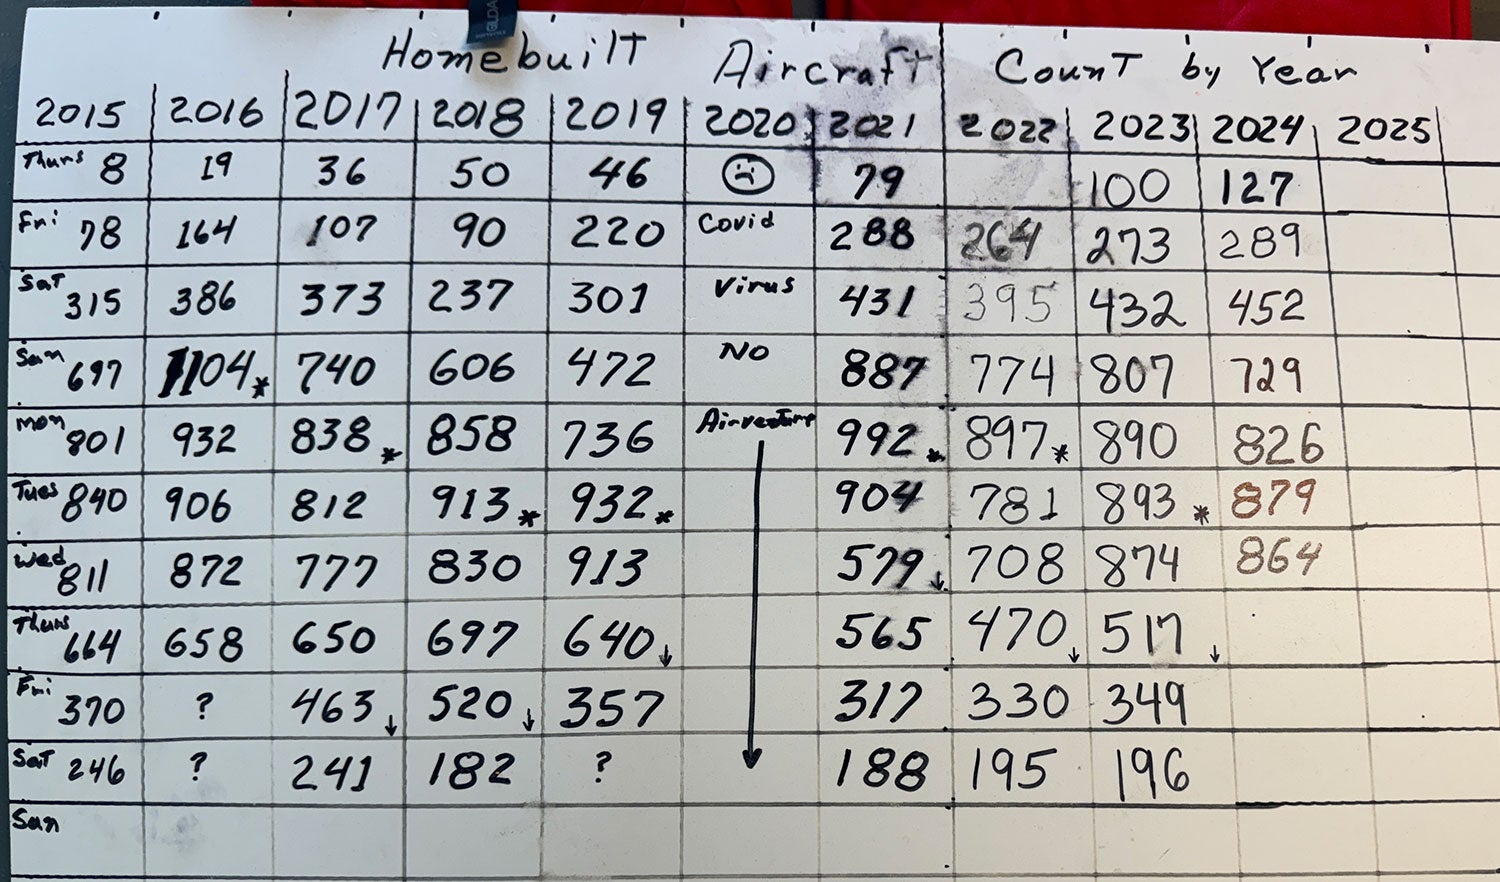 Homebuilt Aircraft Count by Year
2015 2016 2017 2018 2019 2020 2021 2022 2023 2024 2025
Thurs 8 19 36 50 46 79 100 127
Fri 78 164 107 90 220 Covid 288 264 273 289
Sat 315 386 373 237 301 Virus 431 395 432 452
Sun 697 1104* 740 606 472 No 887 774 807 729
Mon 801 932 838* 858 736 Airventure 992* 897* 890 826
Tues 840 906 812 913* 932* 904 781 893* 879
Wed 811 872 777 830 913 579↓ 708 874 864
Thurs 664 658 650 697 640↓ 565 470↓ 517↓
Fri 370 ? 463↓ 520↓ 357 317 330 349
Sat 246 ? 241 182 ? 188 195 196
Sun